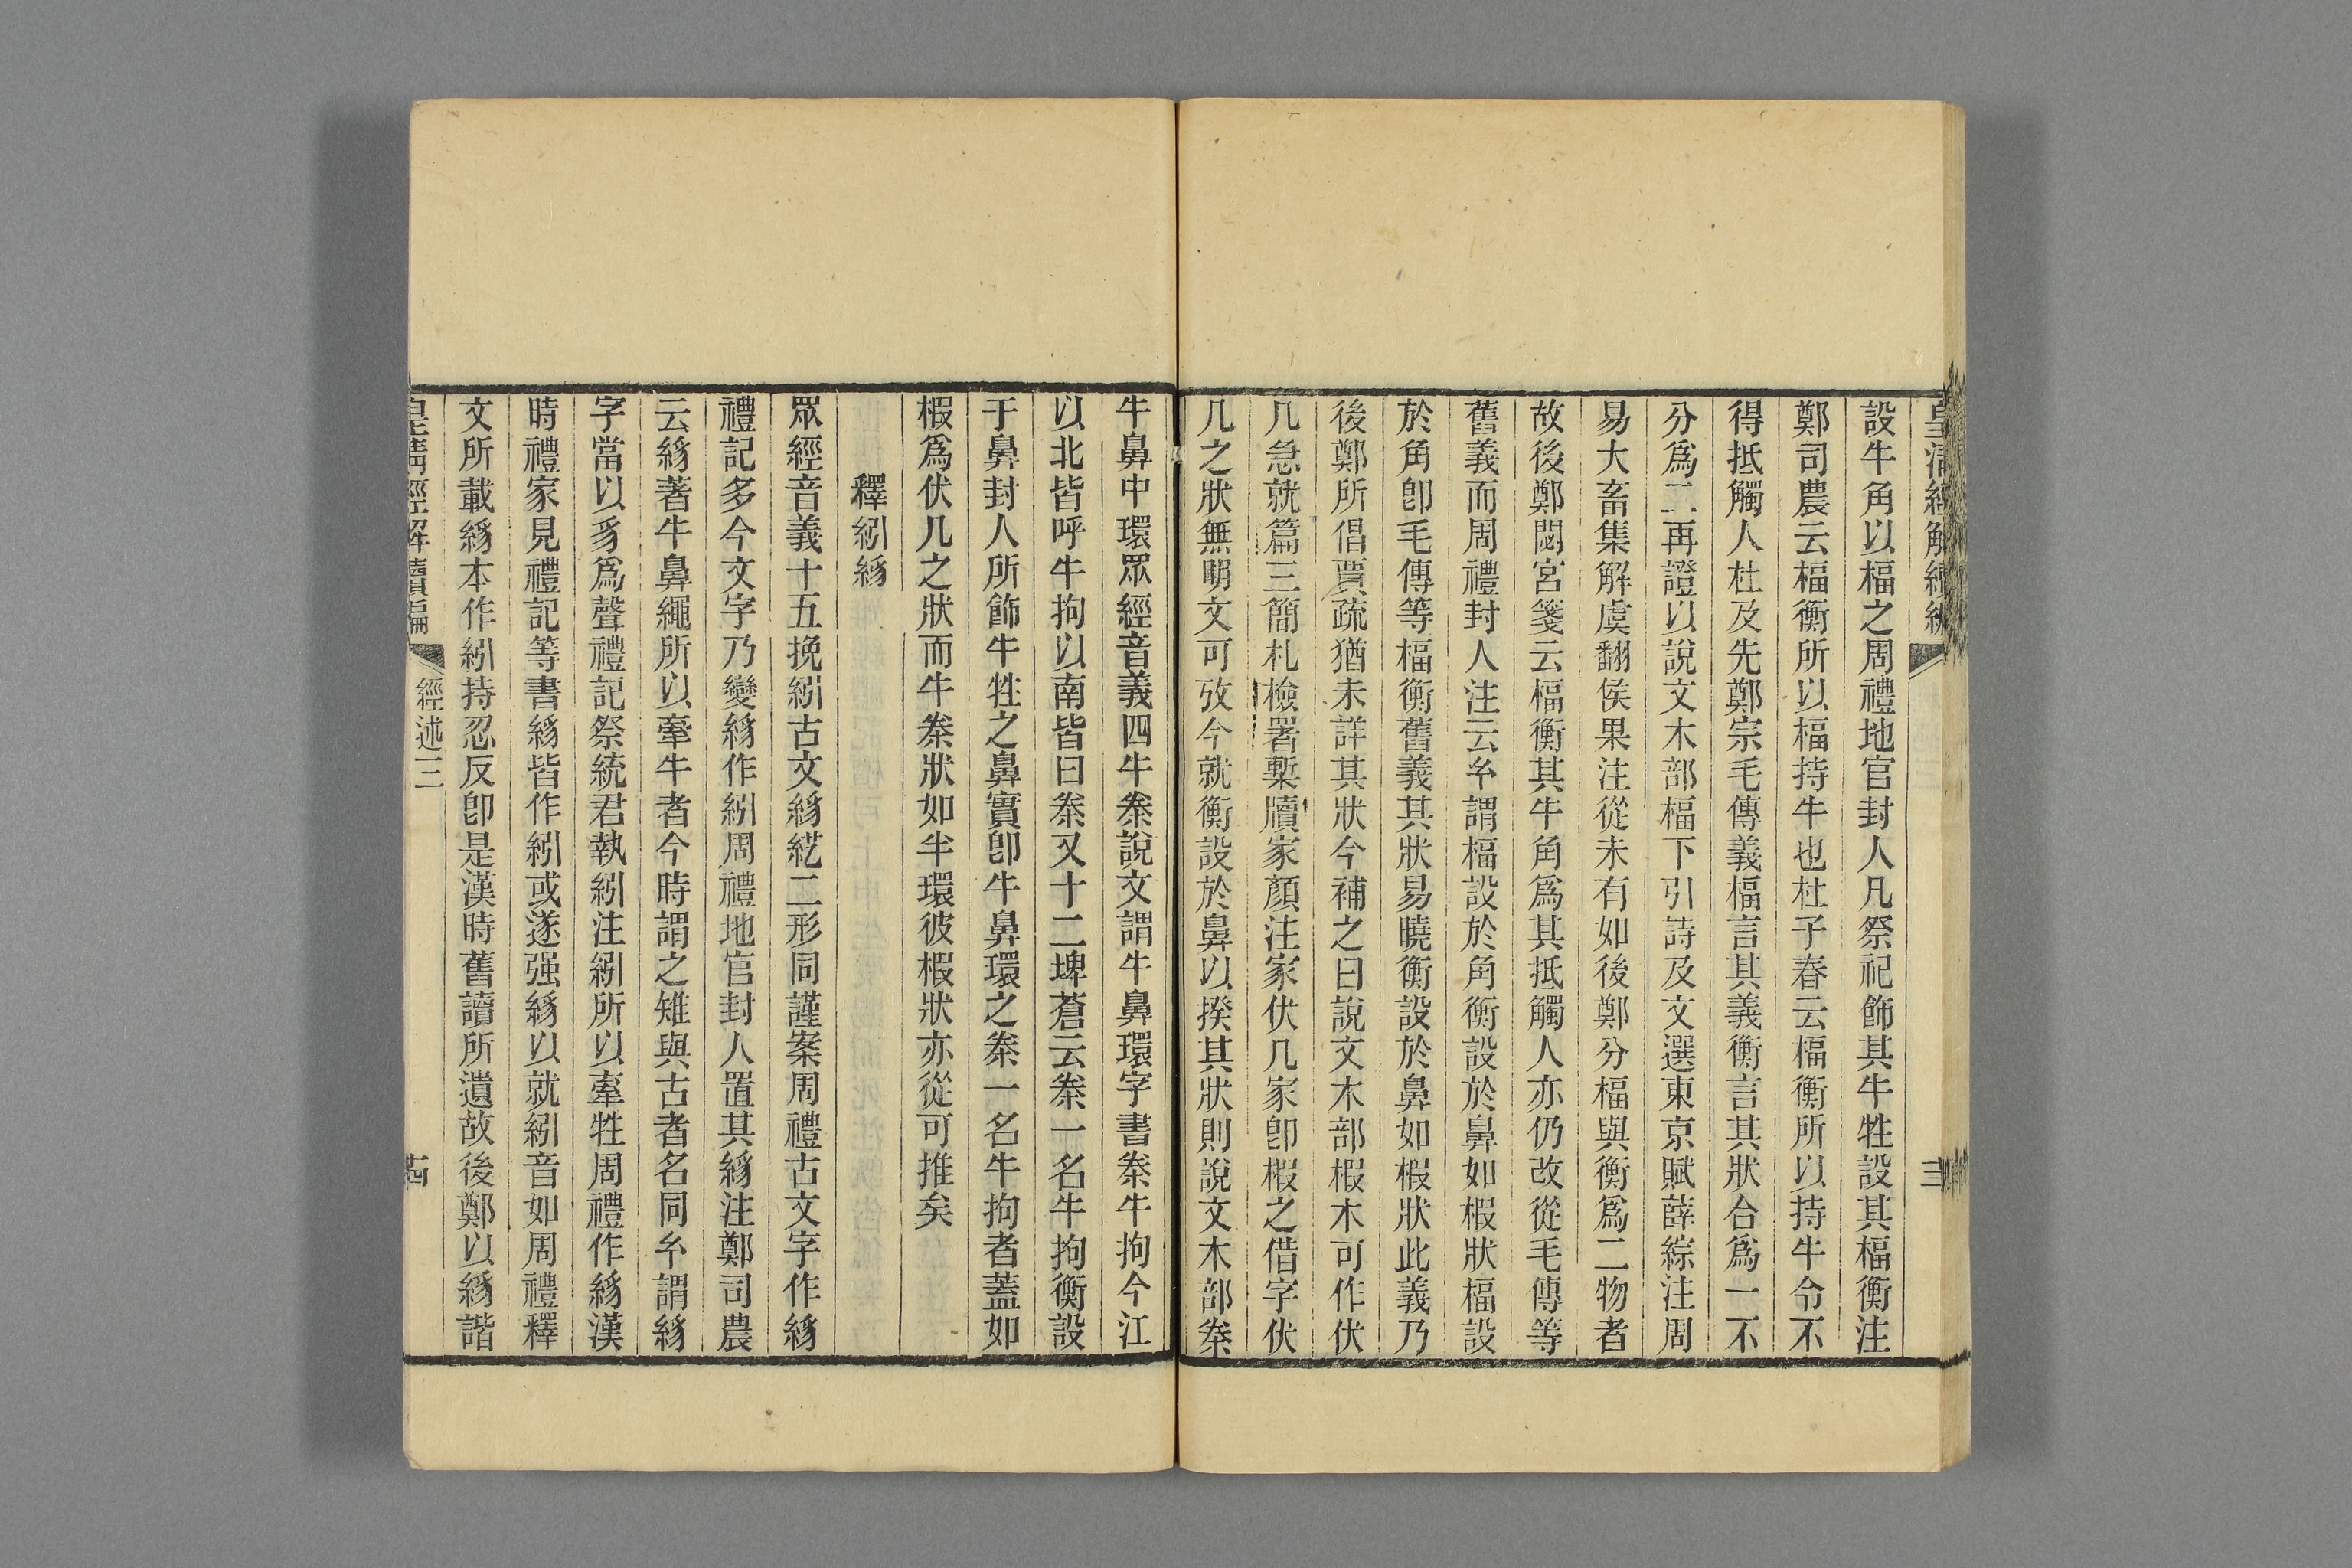 皇清經解續編
設牛角以楅之周禮地官封人凡祭祀飾其牛牲設其楅衡注
鄭司農云楅衡所以楅持牛也杜子春云楅衡所以持牛令不
得抵觸人杜及先鄭宗毛傳義楅言其義衡言其狀合爲一不
分爲二再證以說文木部楅下引詩及文選東京賦薛綜注周
易大畜集解虞翻侯果注從未有如後鄭分楅與衡爲二物者
故後鄭閟宮箋云楅衡其牛角爲其抵觸人亦仍改從毛傳等
舊義而周禮封人注云玄謂楅設於角衡設於鼻如椵狀楅設
於角卽毛傳等楅衡舊義其狀易曉衡設於鼻如椵狀此義乃
後鄭所倡賈疏猶未詳其狀今補之曰說文木部椵木可作伏
几急就篇三簡札檢署槧牘家顏注家伏几家卽椵之借字伏
几之狀無明文可攷今就衡設於鼻以揆其狀則說文木部桊
牛鼻中環眾經音義四牛桊說文謂牛鼻環字書桊牛拘今江
以北皆呼牛拘以南皆曰桊又十二埤蒼云桊一名牛拘衡設
于鼻封人所飾牛牲之鼻實卽牛鼻環之桊一名牛拘者蓋如
椵爲伏几之狀而牛桊狀如半環彼椵狀亦從可推矣
釋紖絼
眾經音義十五挽紖古文絼䋎二形同謹案周禮古文字作絼
禮記多今文字乃變絼作紖周禮地官封人置其絼注鄭司農
云絼著牛鼻繩所以牽牛者今時謂之雉與古者名同玄謂絼
字當以豸爲聲禮記祭統君執紖注紖所以牽牲周禮作絼漢
時禮家見禮記等書絼皆作紖或遂强絼以就紖音如周禮釋
文所載絼本作紖持忍反卽是漢時舊讀所遺故後鄭以絼諧
皇清經解續編
經述三